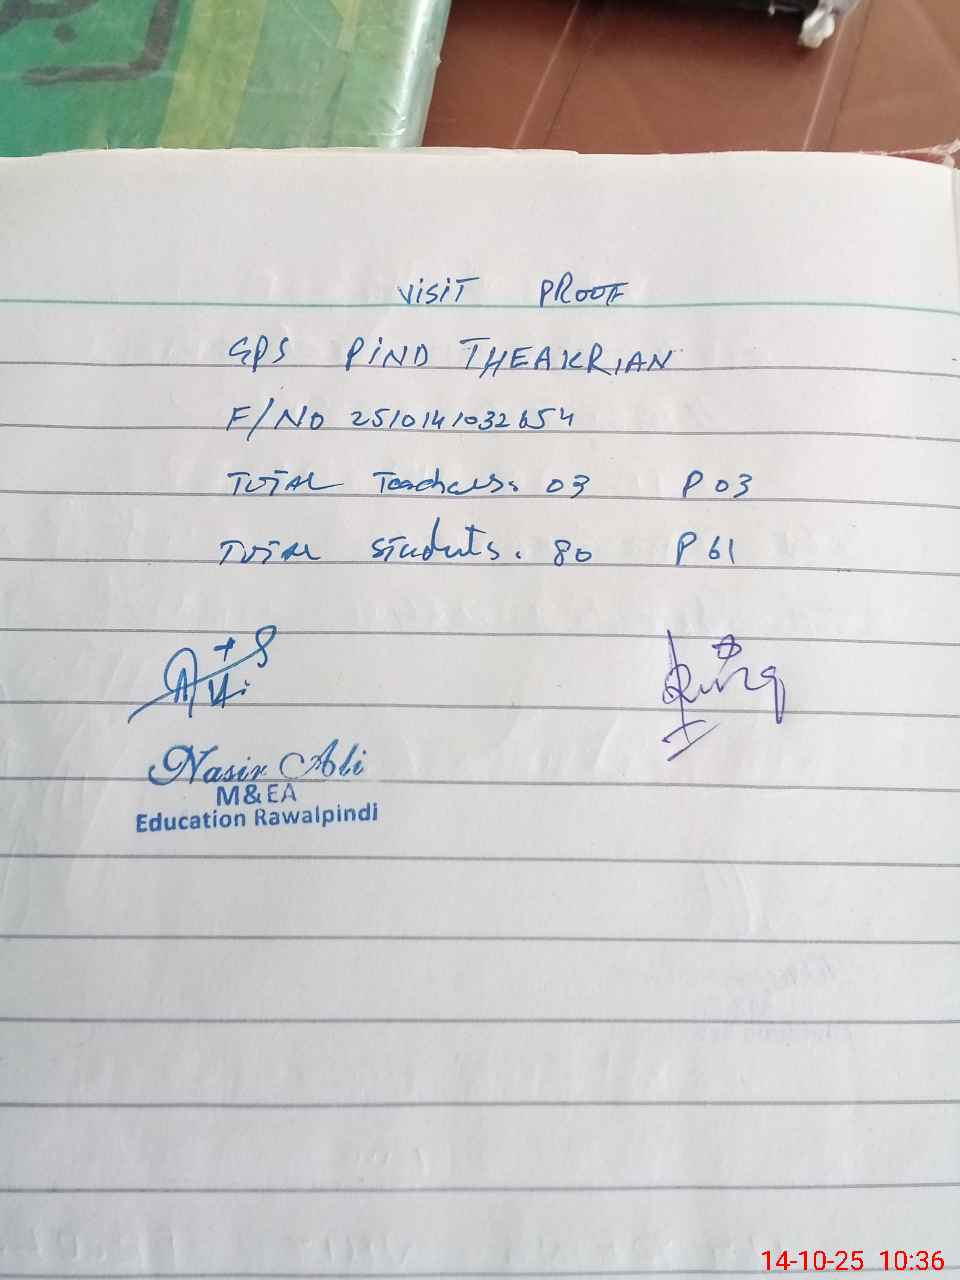 VISIT PROOF
GPS PIND THEAKRIAN
F/NO 2510141032654
TOTAL Teachers. 03 P 03
TOTAL Students. 80 P 61
Nasir Ali
M&EA
Education Rawalpindi
14-10-25 10:36